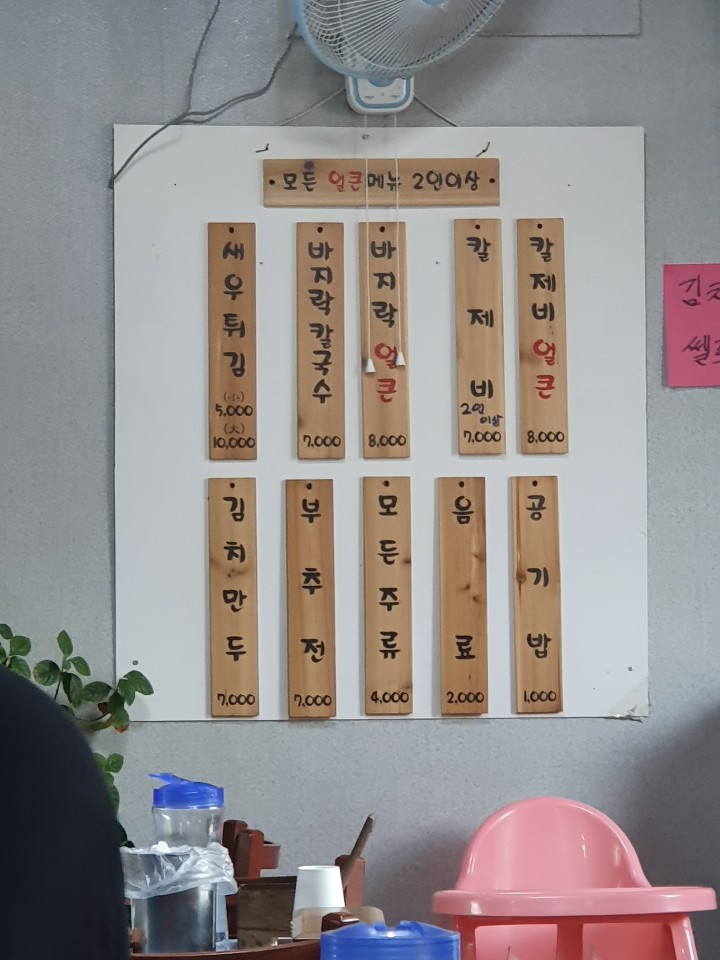 모든 얼큰메뉴 2인이상
새우튀김
(小)
5,000
(大)
10,000
바지락칼국수
7,000
바지락얼큰
8,000
칼제비
2인
이상
7,000
칼제비얼큰
8,000
김치만두
7,000
부추전
7,000
모든주류
4,000
음료
2,000
공기밥
1,000